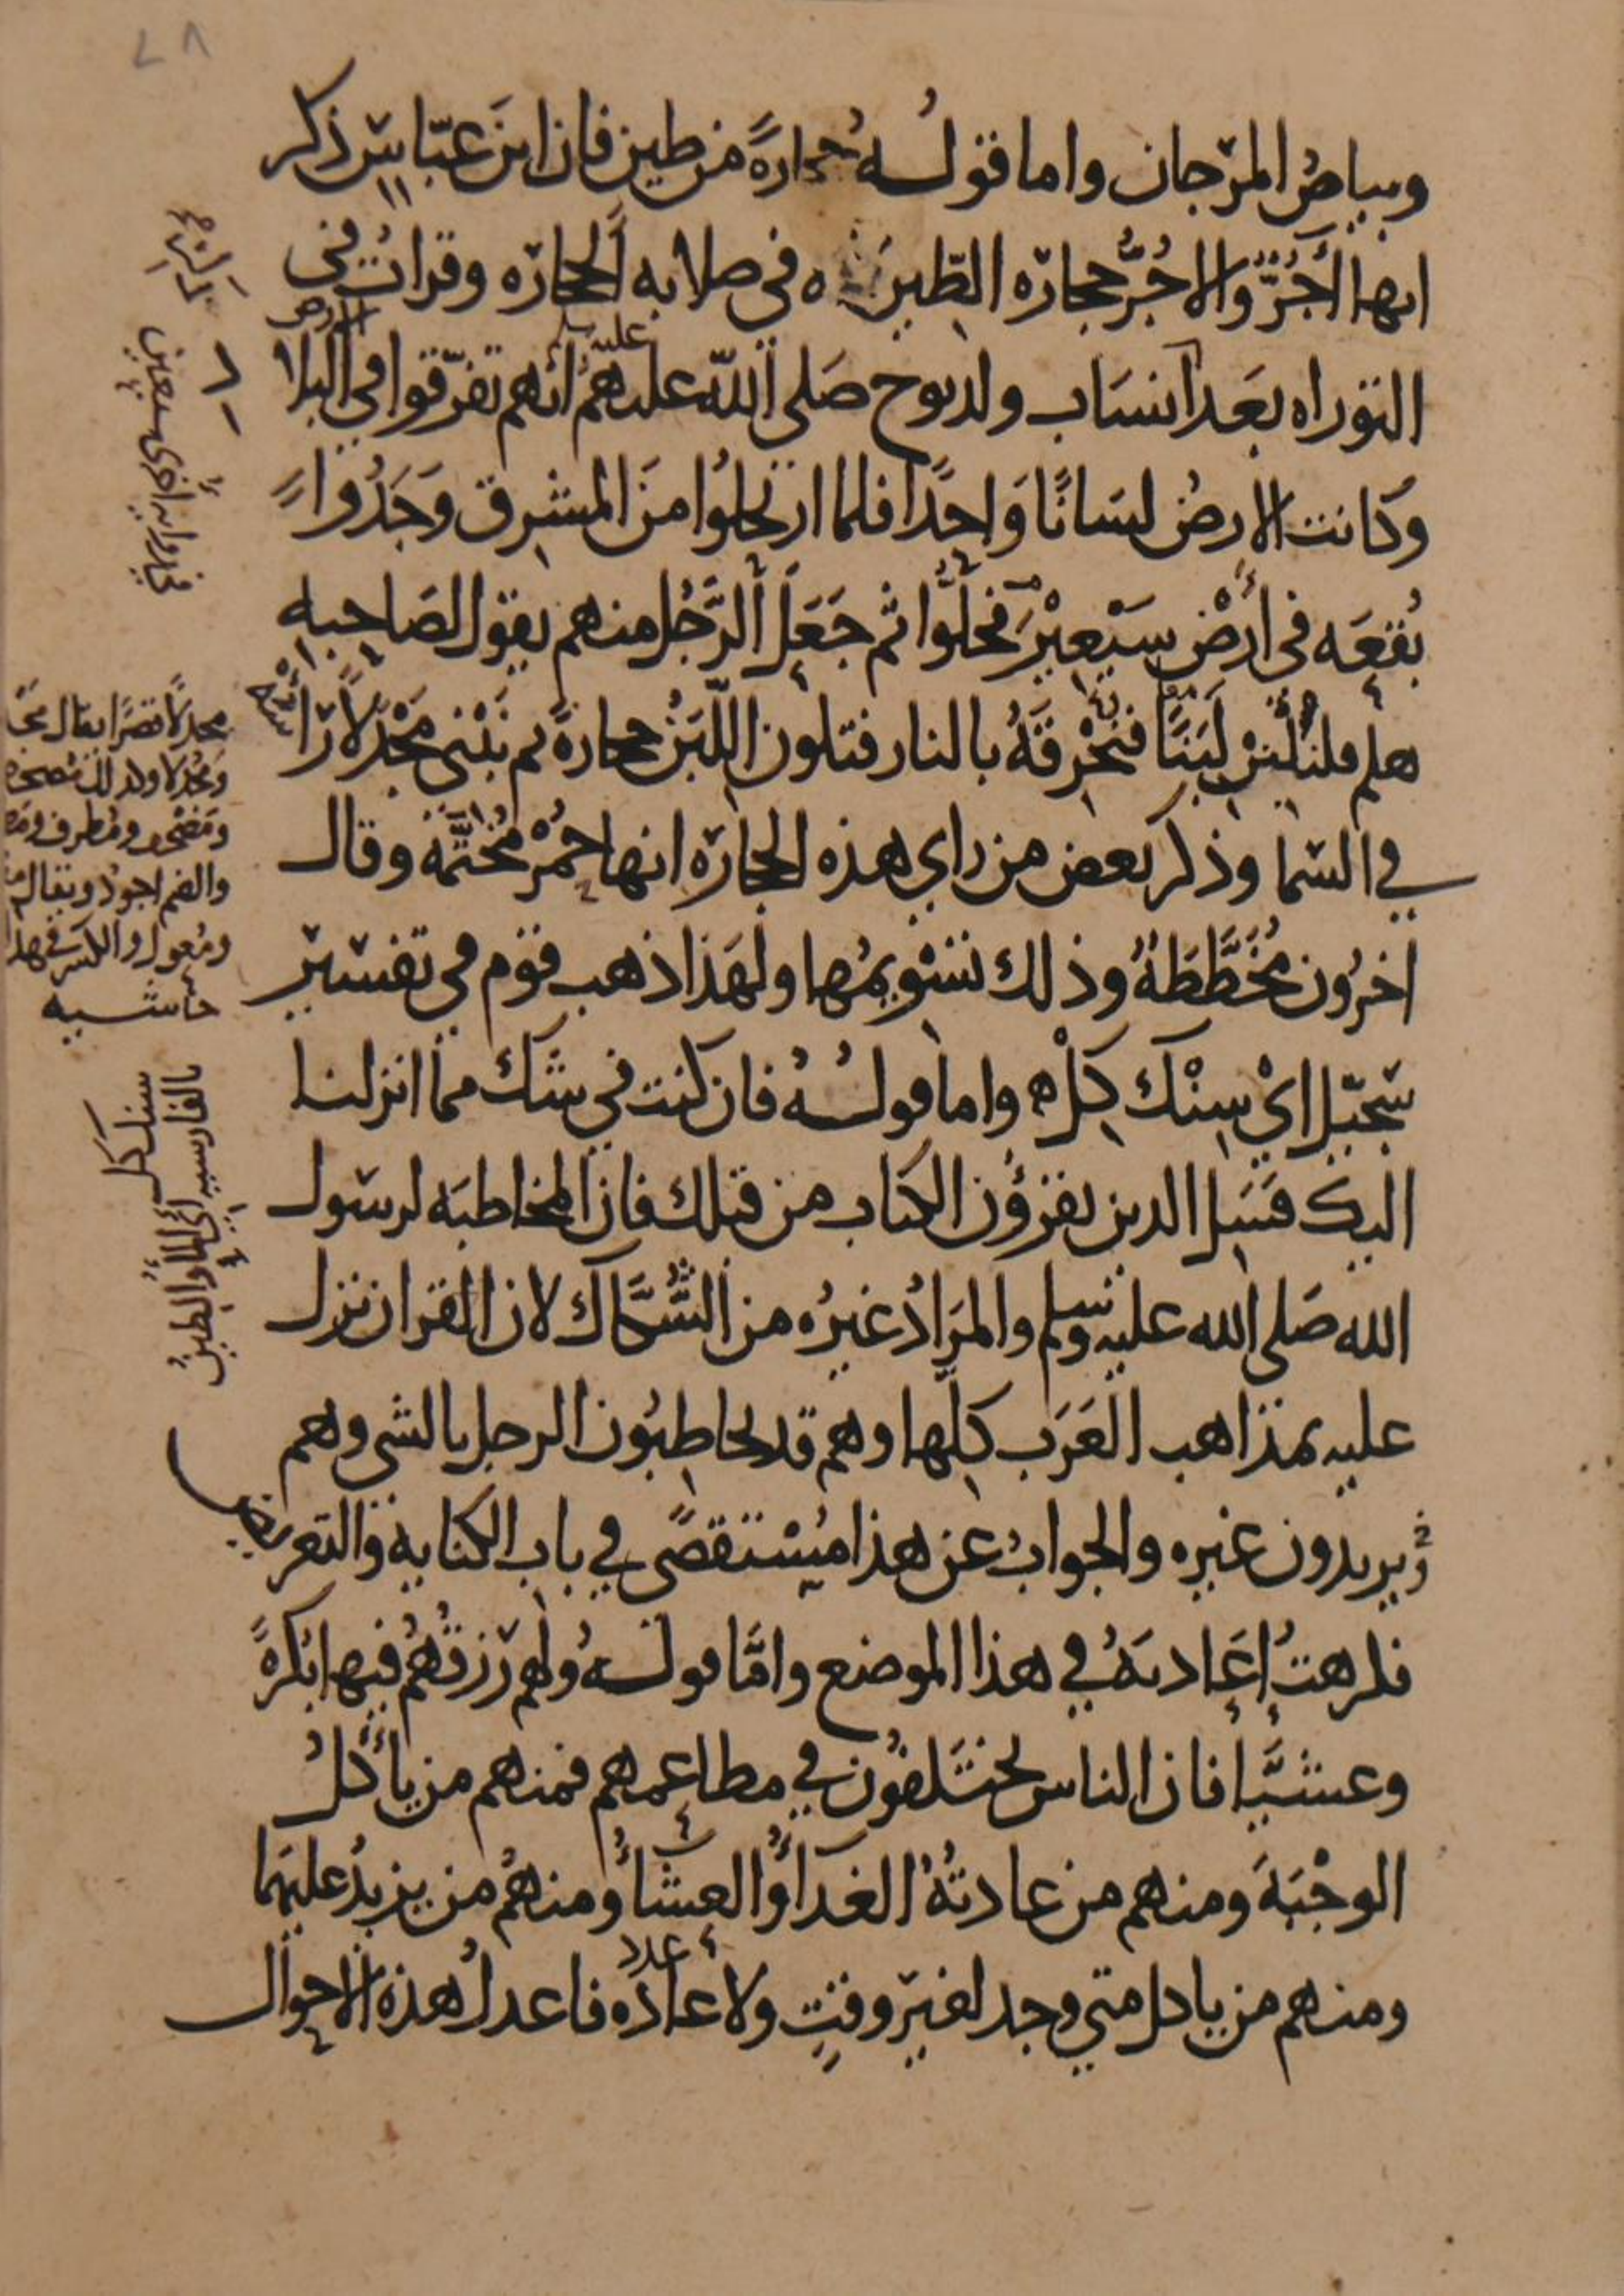 ٧٨
وبياض المرجان واما قوله حجارةً من طين فان ابن عبّاس ذكر
انها آجُرٌّ والاجُرُّ حجارة الطّين ه في صلابه الحجارة وقرات في
التوراه بعد انساب ولد نوح صَلى اللّه عليهم انهم تفرّقوا في البلاد
عليه
الارض
وكانت الارضُ لسَانًا وَاحدًا فلما ارتحلوُا منَ المشرق وَجَدُوا
بُقعَه في ارْض سَعِيْر فحلَّوا ثم جَعَلَ الرَّجُل منهم يقول لصَاحِبه
هلم فلنُلَبّنْ لَبَنًا فنُحْرِقَهُ بالنار فتكون اللَّبَنُ حجارةً ثم نَبْني مَجْدَلًا رَاسُهُ
في السّما وذكر بعض من راي هذه الحجارَة انها حُمْرٌ مُخَتَّمَة وقال
اخرُون مُخَطَّطَةٌ وذلك تسْويمُها ولهَذا ذهب قوْم في تفسّير
سجّيل ايْ سِنْك كِلْ ه واما قولُهُ فان كنت في شك مما انزلنا
اليك فسَل الذين يقرؤن الكتاب من قبلك فان المخاطبَه لرسول
الله صَلى الله عليه وسلم والمرَادُ غيرُه من الشُّكَّاك لان القران نزل
عليه بمذاهب العَرَب كلّها وهم قد يخاطبُون الرجل بالشي وهم
يريدون غيره والجوابُ عن هذا مُسْتقصًى في باب الكنايه والتعريض
فكرهتُ إعَادتَهُ في هذا الموضع وامَّا قولُهُ ولهم رزقُهُمْ فيها بُكرةً
وعشيَّا فان الناس يختَلفُون في مطاعمهم فمنهم من يأكلُ
الوجْبَةَ ومنهم من عادتُهُ الغدَآءُ والعشَاءُ ومنهُم من يزيدُ عليهَما
ومنهم من ياكل متى وجد لغيرَ وقتٍ ولا عادَه فاعدلُ هذه الاحوال
عدد
مجدلًا قصرًا يقال
والضم اجود ويقال
حاشيه
سنك كل
بالفارسيه اي الماءُ والطينُ